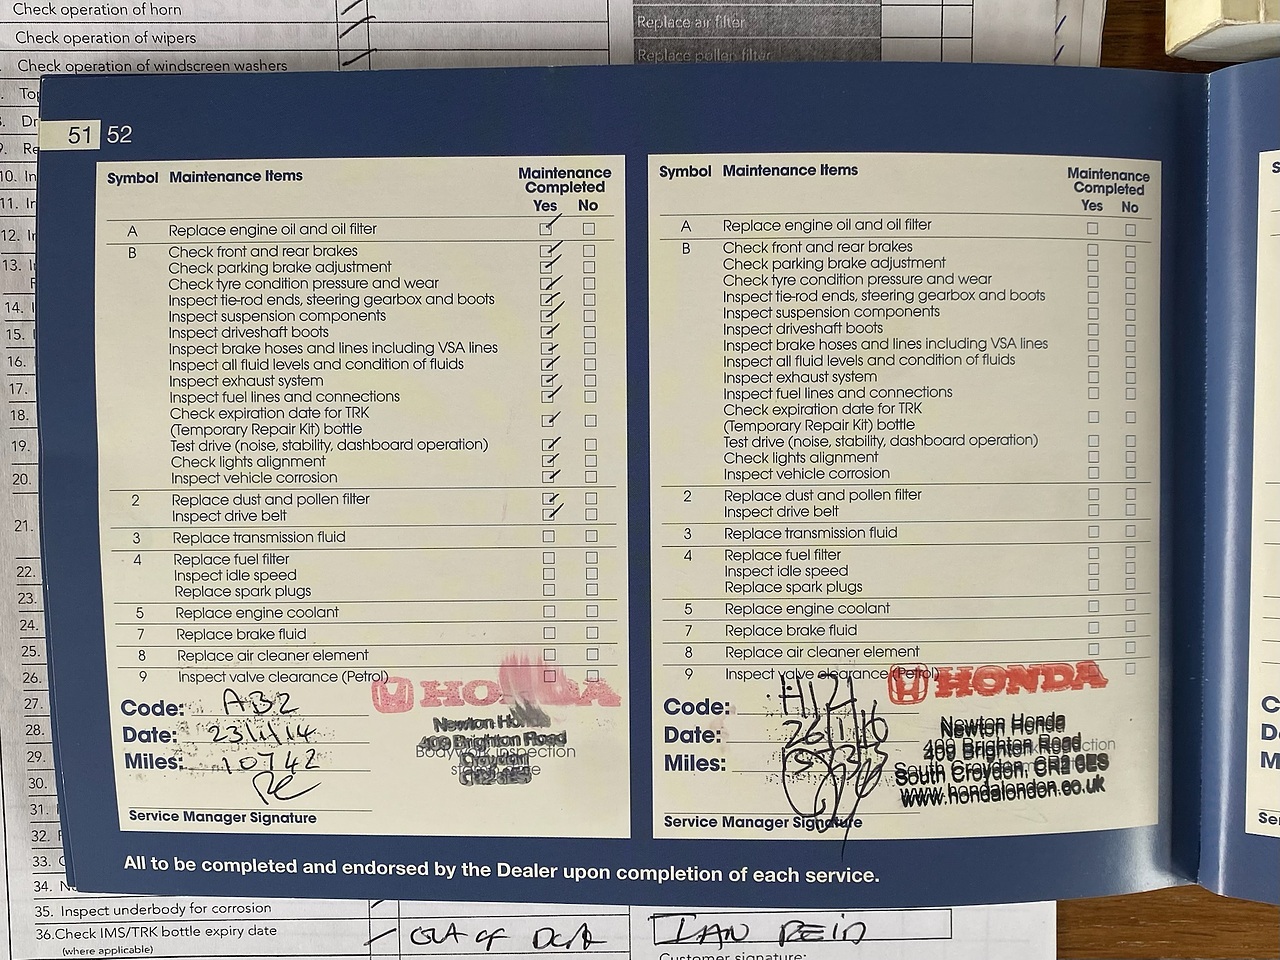 Check operation of horn
Check operation of wipers
Check operation of windscreen washers
Replace air filter
Replace pollen filter
51 52
Symbol Maintenance Items Maintenance
Completed
Yes No
A Replace engine oil and oil filter
B Check front and rear brakes
Check parking brake adjustment
Check tyre condition pressure and wear
Inspect tie-rod ends, steering gearbox and boots
Inspect suspension components
Inspect driveshaft boots
Inspect brake hoses and lines including VSA lines
Inspect all fluid levels and condition of fluids
Inspect exhaust system
Inspect fuel lines and connections
Check expiration date for TRK
(Temporary Repair Kit) bottle
Test drive (noise, stability, dashboard operation)
Check lights alignment
Inspect vehicle corrosion
2 Replace dust and pollen filter
Inspect drive belt
3 Replace transmission fluid
4 Replace fuel filter
Inspect idle speed
Replace spark plugs
5 Replace engine coolant
7 Replace brake fluid
8 Replace air cleaner element
9 Inspect valve clearance (Petrol)
HONDA
Code: AB2
Date: 23/1/14
Miles: 10742
Newton Honda
400 Brighton Road
Croydon
CR2 6ES
Bodywork Inspection
Service Manager Signature
Symbol Maintenance Items Maintenance
Completed
Yes No
A Replace engine oil and oil filter
B Check front and rear brakes
Check parking brake adjustment
Check tyre condition pressure and wear
Inspect tie-rod ends, steering gearbox and boots
Inspect suspension components
Inspect driveshaft boots
Inspect brake hoses and lines including VSA lines
Inspect all fluid levels and condition of fluids
Inspect exhaust system
Inspect fuel lines and connections
Check expiration date for TRK
(Temporary Repair Kit) bottle
Test drive (noise, stability, dashboard operation)
Check lights alignment
Inspect vehicle corrosion
2 Replace dust and pollen filter
Inspect drive belt
3 Replace transmission fluid
4 Replace fuel filter
Inspect idle speed
Replace spark plugs
5 Replace engine coolant
7 Replace brake fluid
8 Replace air cleaner element
9 Inspect valve clearance (Petrol)
HONDA
Code:
Date: 26/1/16
Miles:
Newton Honda
400 Brighton Road
South Croydon, CR2 6ES
www.hondalondon.co.uk
Service Manager Signature
All to be completed and endorsed by the Dealer upon completion of each service.
9.
10.
11.
12.
13.
14.
15.
16.
17.
18.
19.
20.
21.
22.
23.
24.
25.
26.
27.
28.
29.
30.
31.
32.
33.
34.
35. Inspect underbody for corrosion
36.Check IMS/TRK bottle expiry date
(where applicable)
OUT OF DATE
IAN REID
Customer signature: